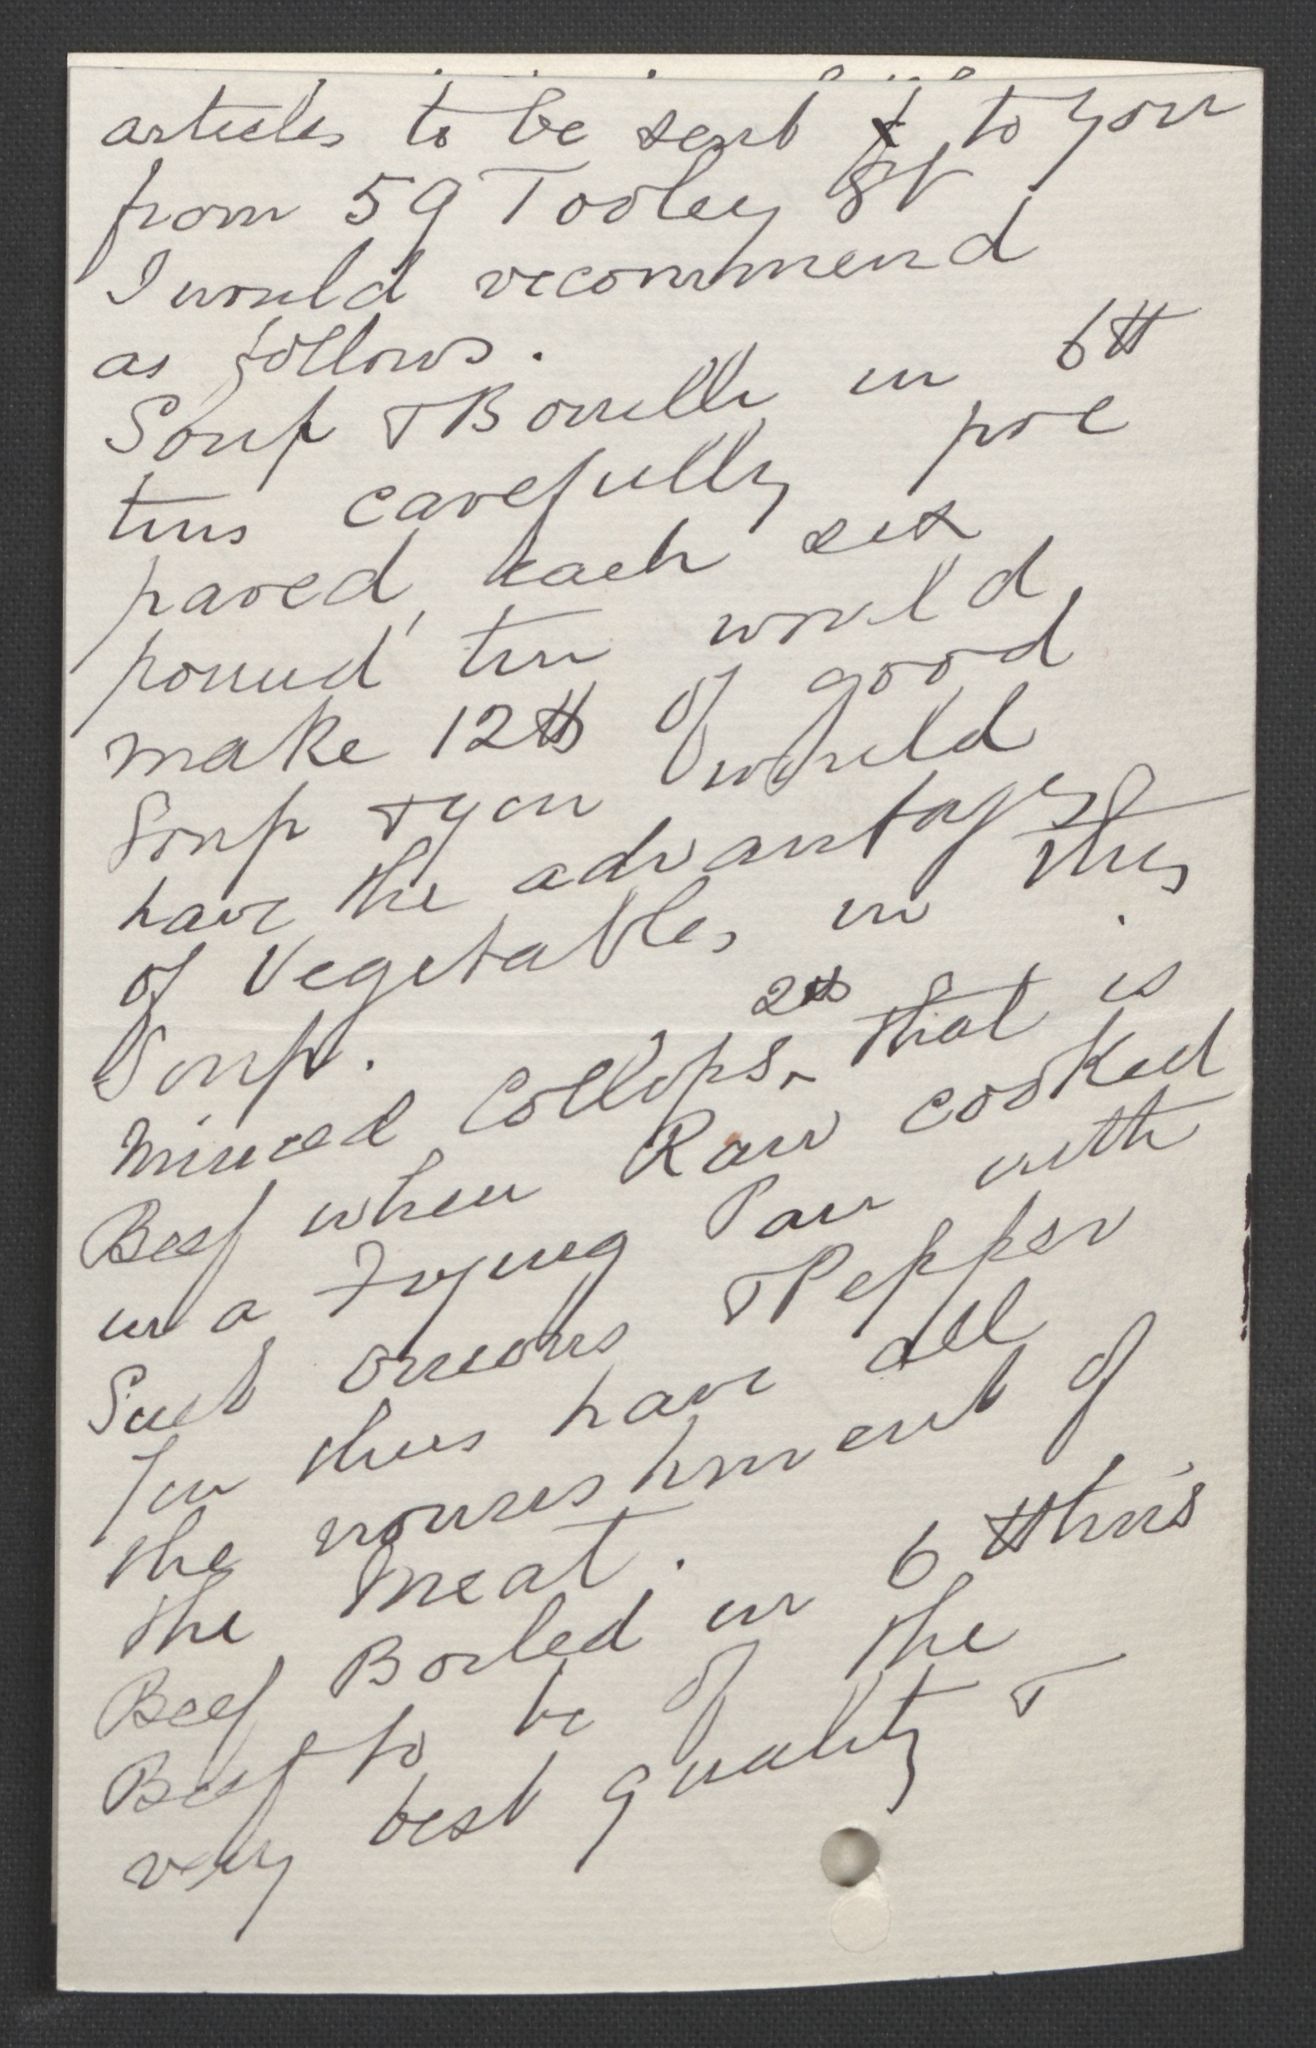 articles to be sent to you
from 59 Tooley St
I would recommend
as follows.
Soup & Bouilli in 6 lb
tins carefully pre
pared, each six
pound tin would
make 12 lbs of good
Soup & you would
have the advantage
of Vegetables in this
Soup.
Minced Collops 2 lbs that is
Beef when Raw cooked
in a Frying Pan with
Suet onions & Pepper
You thus have all
the nourishment of
the Meat.
Beef Boiled in 6 lb tins
Beef to be of the
very best quality &